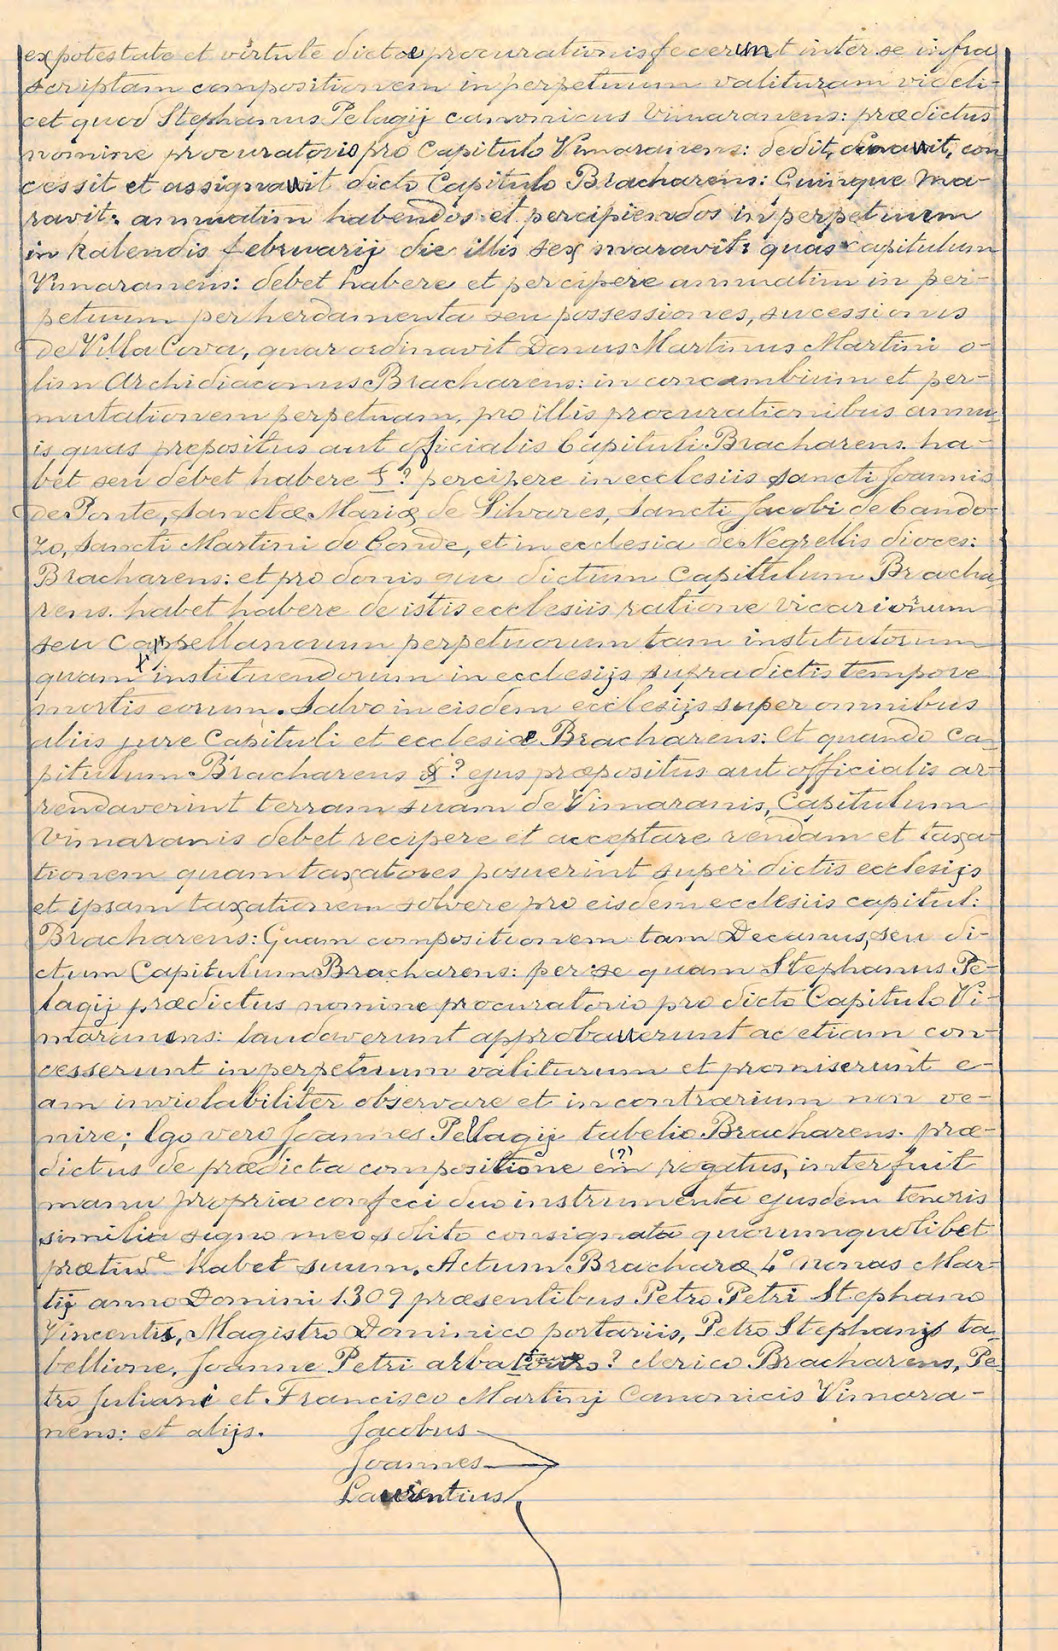 ex potestate et virtute dictæ procurationis fecerunt inter se infra
scriptam compositionem in perpetuum valituram videli-
cet quod Stephanus Pelagij canonicus Vimaranens: prædictus
nomine procuratorio pro Capitulo Vimaranens: dedit, donavit, con
cessit et assignavit dicto Capitulo Bracharens: Quinque Ma-
ravit: annuatim habendos et percipiendos in perpetuum
in Kalendis februarij die illis sex maravit: quas capitulum
Vimaranens: debet habere et percipere annuatim in per-
petuum per herdamenta seu possessiones, sucessionis
de Villa Cova, quar ordinavit Donus Martinus Martini o-
lim Archidiaconus Bracharens: in concambium et per-
mutationem perpetuam, pro illis procurationibus annu-
is quas prepositus aut officialis Capituli Bracharens. ha-
bet seu debet habere § ? percipere in ecclesiis Sancti Joannis
de Ponte, Sanctæ Mariæ de Silvares, Sancti Jacobi de Cando-
zo, Sancti Martini do Conde, et in ecclesia de Negrellis dioces:
Bracharens: et pro donis que dictum Capittulum Bracha-
rens. habet habere de istis ecclesiis ratione vicariorum
seu Cappellanorum perpetuorum tam institutorum
quam instituendorum in ecclesijs supradictis tempore
mortis eorum. Salvo in eisdem ecclesijs super omnibus
aliis jure Capituli et ecclesiæ Bracharens: Et quando Ca-
pitulum Bracharens § ? ejus præpositus aut officialis ar-
rendaverint terram suam de Vimaranis, Capitulum
Vimaranis debet recipere et acceptare rendam et taxa-
tionem quam taxatores posuerint super dictis ecclesijs
et ipsam taxationem solvere pro eisdem ecclesiis capitul:
Bracharens: Quam compositionem tam Decanus, seu di-
ctum Capitulum Bracharens: per se quam Stephanus Pe-
lagij prædictus nomine procuratorio pro dicto Capitulo Vi-
maranens: laudaverunt approbaverunt ac etiam con-
cesserunt in perpetuum valiturum et promiserunt e-
am inviolabiliter observare et in contrarium non ve-
nire; Ego vero Joannes Pelagij tabelio Bracharens. præ-
dictus de prædicta compositione em (?) rogatus, interfuit
manu propria confeci duo instrumenta ejusdem tenoris
similia signo meo solito consignata quorumquelibet
habet suum. Actum Bracharæ 4º nonas Mar-
tij anno Domini 1309 præsentibus Petro Petri Stephano
Vincentis, Magistro Dominico portariis, Petro Stephanij ta-
bellione. Joanne Petri ? clerico Bracharens, Pe-
tro Juliani et Francisco Martinj Canonicis Vimara-
nens: et alijs.
Jacobus
Joannes
Laurentius